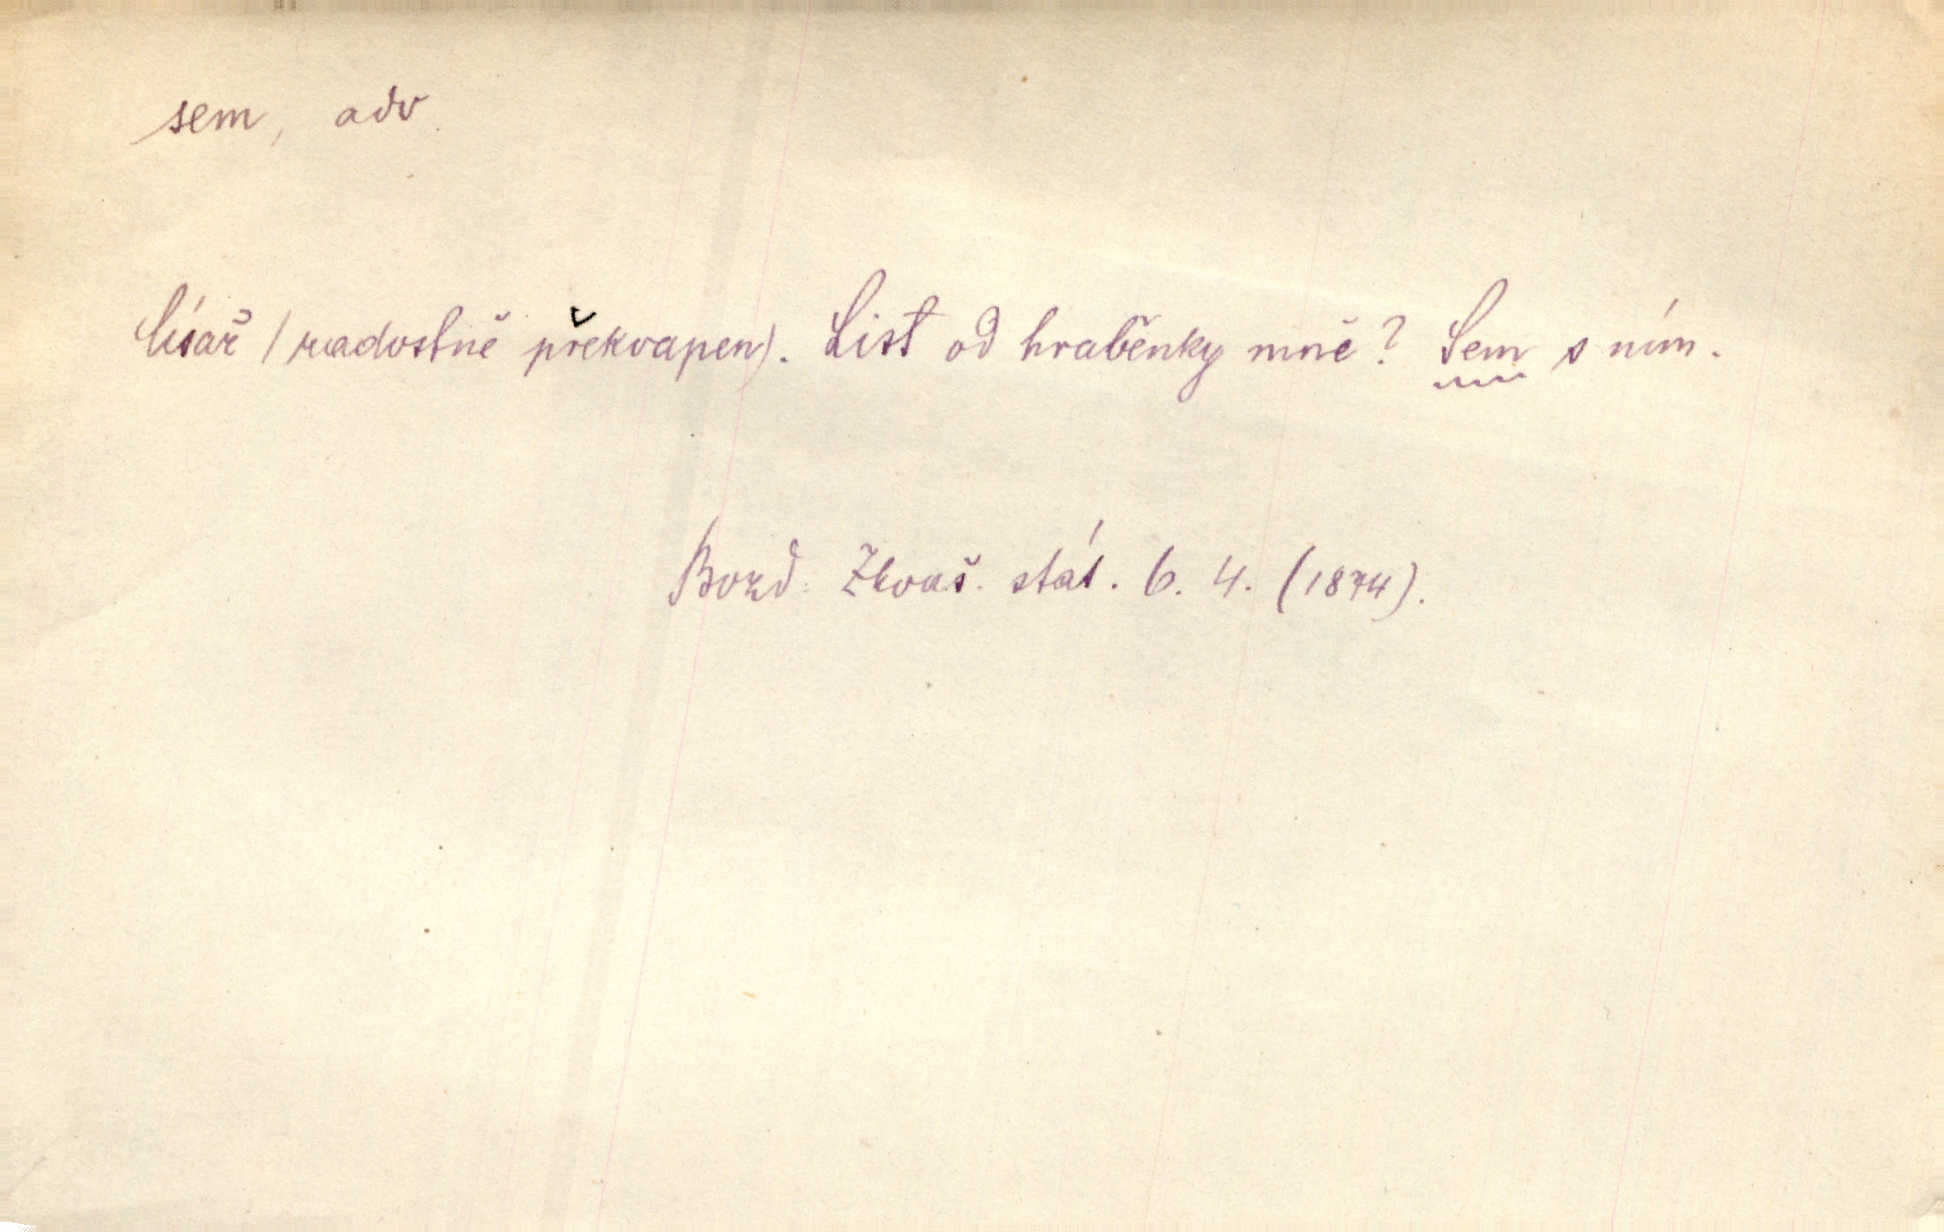 sem, adv.
Císař (radostně překvapen). List od hraběnky mně? Sem s ním.
Bozd. Zkouš. stát. 6. 4. (1874).